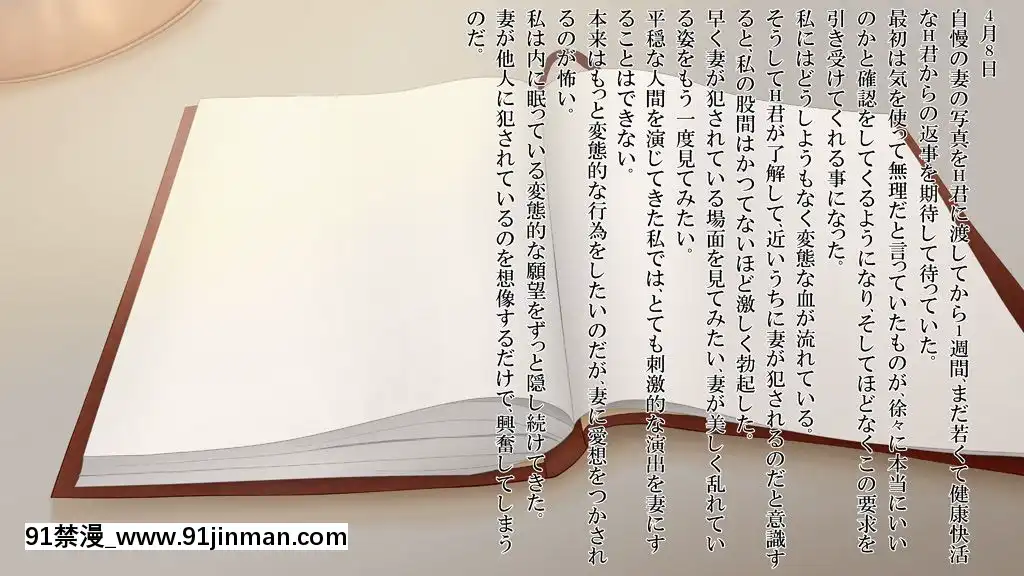 4月8日
自慢の妻の写真をH君に渡してから1週間、まだ若くて健康快活
なH君からの返事を期待して待っていた。
最初は気を使って無理だと言っていたものが、徐々に本当にいい
のかと確認をしてくるようになり、そしてほどなくこの要求を
引き受けてくれる事になった。
私にはどうしようもなく変態な血が流れている。
そうしてH君が了解して、近いうちに妻が犯されるのだと意識す
ると、私の股間はかつてないほど激しく勃起した。
早く妻が犯されている場面を見てみたい、妻が美しく乱れてい
る姿をもう一度見てみたい。
平穏な人間を演じてきた私では、とても刺激的な演出を妻にす
ることはできない。
本来はもっと変態的な行為をしたいのだが、妻に愛想をつかされ
るのが怖い。
私は内に眠っている変態的な願望をずっと隠し続けてきた。
妻が他人に犯されているのを想像するだけで、興奮してしまう
のだ。
91禁漫_www.91jinman.com